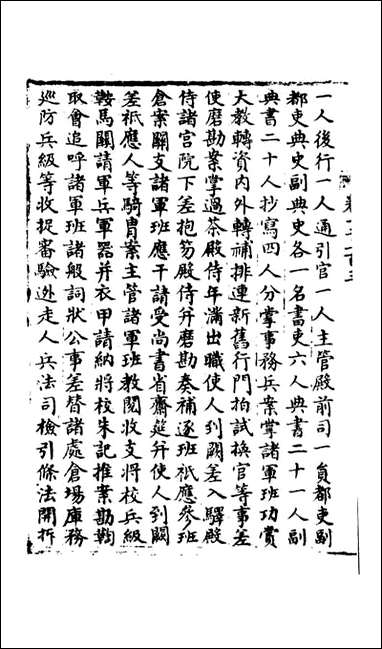 一人後行一人通引官一人主管殿前司一員都吏副
都吏典史副典史各一名書吏六人典書二十一人副
典書二十人抄寫四人分掌事務兵案掌諸軍班功賞
大教轉資内外轉補排連新舊行門拍試換官等事差
使磨勘案掌過茶殿侍年滿出職使人到闕差入驛殿
侍諸宮院下差抱笏殿侍并磨勘奏補逐班祇應參班
倉案關支諸軍班應干請受尚書省齋筵并使人到闕
差祇應人等騎胄案主管諸軍班教閲收支將校兵級
鞍馬關請軍兵軍器并衣甲請納將校朱記推案勘鞫
取會追呼諸軍班諸般詞狀公事差替諸處倉場庫務
巡防兵級等收捉審驗逃走人兵法司檢引條法開拆